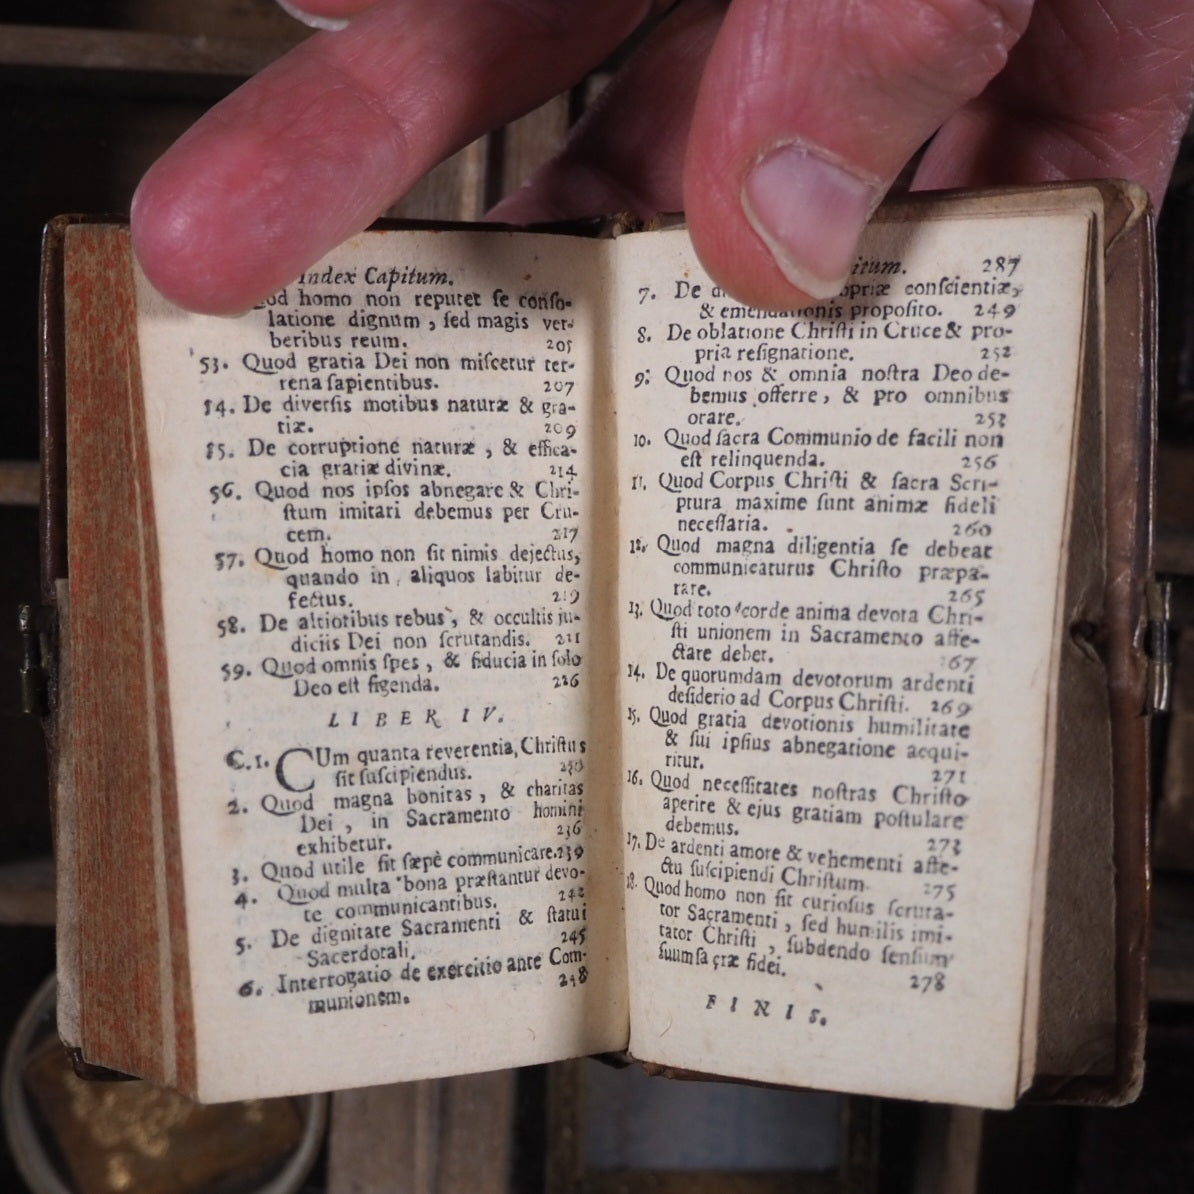 Index Capitum.
homo non reputet ſe conſo-
latione dignum, ſed magis ver-
beribus reum. 205
53. Quod gratia Dei non miſcetur ter-
rena ſapientibus. 207
54. De diverſis motibus naturæ & gra-
tiæ. 209
55. De corruptione naturæ, & effica-
cia gratiæ divinæ. 214
56. Quod nos ipſos abnegare & Chri-
ſtum imitari debemus per Cru-
cem. 217
57. Quod homo non ſit nimis dejectus,
quando in aliquos labitur de-
fectus. 219
58. De altioribus rebus, & occultis ju-
diciis Dei non ſcrutandis. 221
59. Quod omnis ſpes, & fiducia in ſolo
Deo eſt figenda. 226
LIBER IV.
C. 1. CUm quanta reverentia, Chriſtus
ſit ſuſcipiendus. 230
2. Quod magna bonitas, & charitas
Dei, in Sacramento homini
exhibetur. 236
3. Quod utile ſit ſæpè communicare. 239
4. Quod multa bona præſtantur devo-
te communicantibus. 242
5. De dignitate Sacramenti & ſtatui
Sacerdotali. 245
6. Interrogatio de exercitio ante Com-
munionem. 248
itum. 287
7. De conſcientiæ,
& emendationis propoſito. 249
8. De oblatione Chriſti in Cruce & pro-
pria reſignatione. 252
9. Quod nos & omnia noſtra Deo de-
bemus offerre, & pro omnibus
orare. 253
10. Quod ſacra Communio de facili non
eſt relinquenda. 256
11. Quod Corpus Chriſti & ſacra Scri-
ptura maxime ſunt animæ fideli
neceſſaria. 260
12. Quod magna diligentia ſe debeat
communicaturus Chriſto præpa-
rare. 265
13. Quod toto corde anima devota Chri-
ſti unionem in Sacramento affe-
ctare debet. 67
14. De quorumdam devotorum ardenti
deſiderio ad Corpus Chriſti. 269
15. Quod gratia devotionis humilitate
& ſui ipſius abnegatione acqui-
ritur. 271
16. Quod neceſſitates noſtras Chriſto
aperire & ejus gratiam poſtulare
debemus. 273
17. De ardenti amore & vehementi affe-
ctu ſuſcipiendi Chriſtum. 275
18. Quod homo non ſit curioſus ſcruta-
tor Sacramenti, ſed humilis imi-
tator Chriſti, ſubdendo ſenſum
ſuum ſa cræ fidei. 278
FINIS.